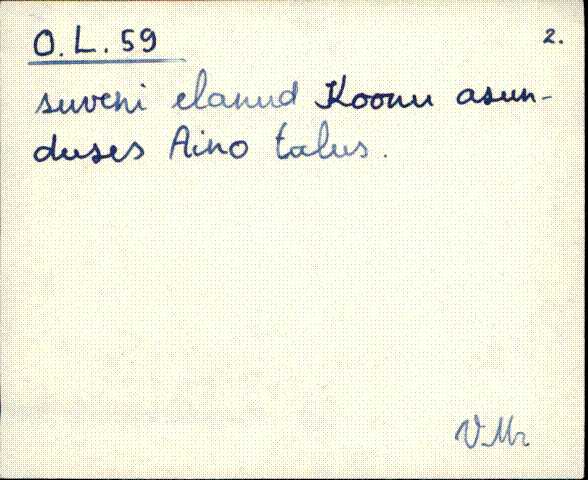 O.L.59
2.
suveni elanud Koonu asun-
duses Aino talus.
V.Mr